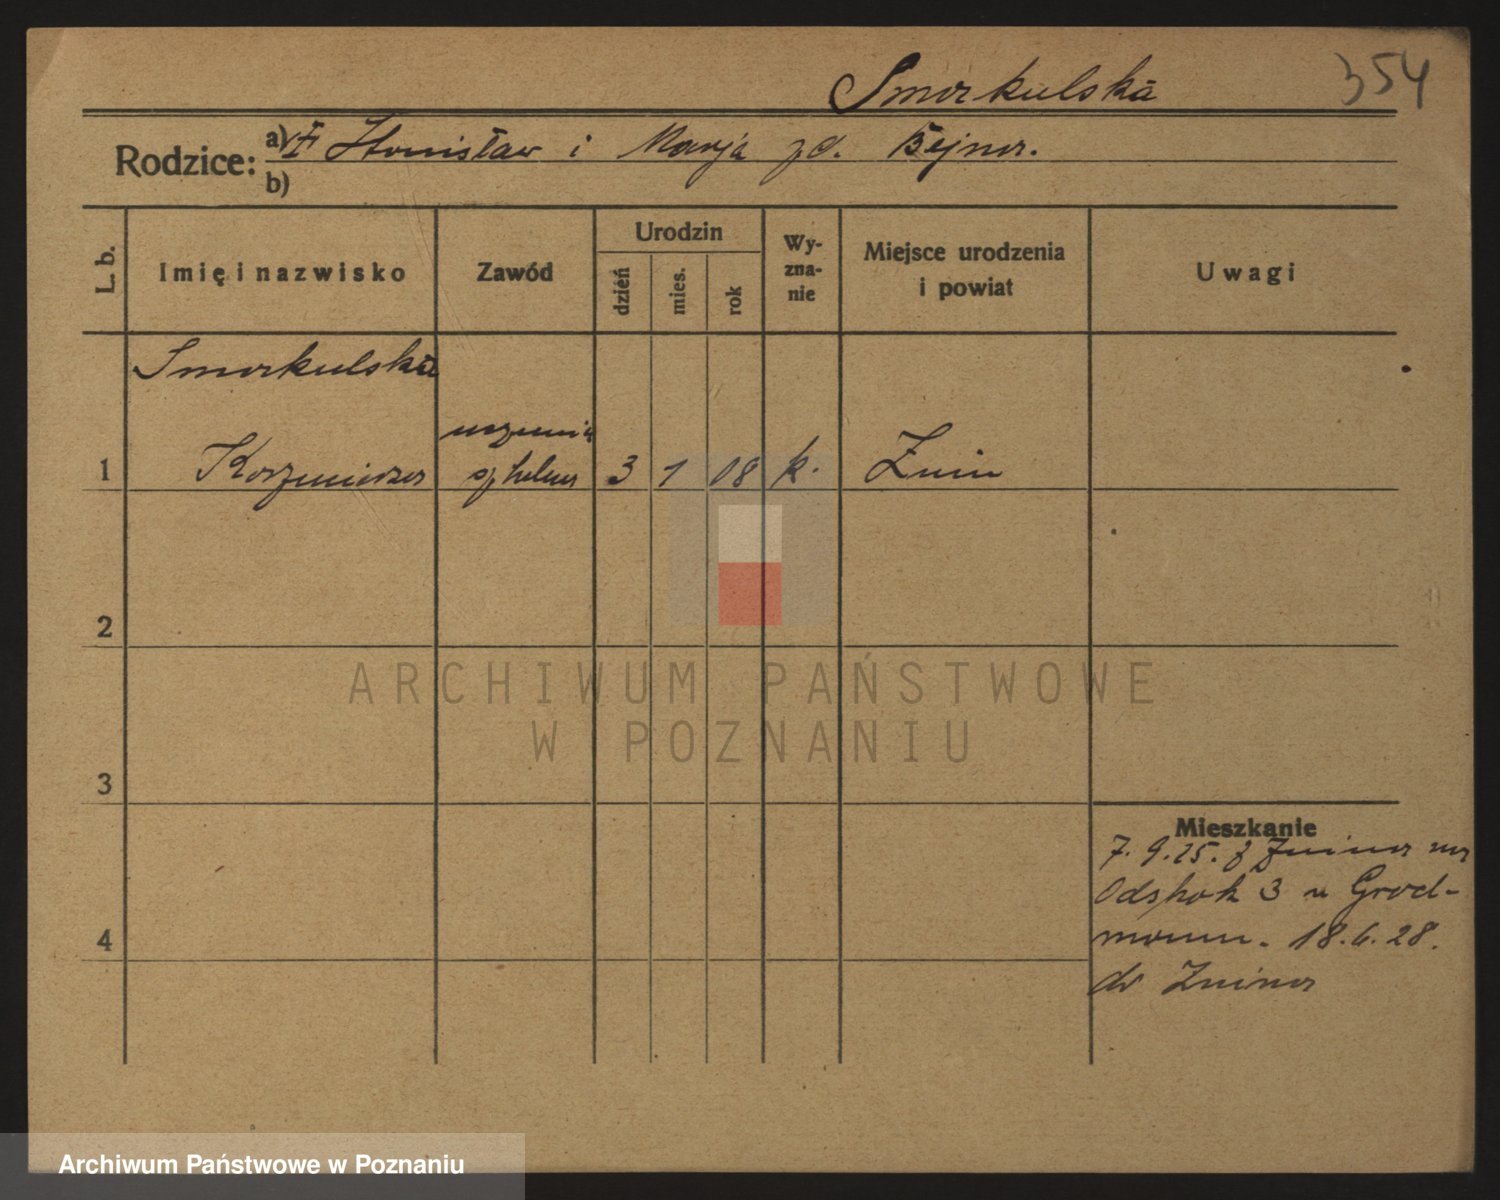 Smorkulska 354
Rodzice: a) Stanisław i Marja zd. Bejna.
b)
L. b. Imię i nazwisko Zawód Urodzin dzień mies. rok Wyznanie Miejsce urodzenia i powiat Uwagi
Smorkulska
uczenic
1 Kazimiera szkolna 3 1 08 k. Żnin
2
3
4
Mieszkanie
7.9.25. z Żnina na
3 u Grod-
18.6.28.
do Żnina
ARCHIWUM PAŃSTWOWE
W POZNANIU
Archiwum Państwowe w Poznaniu